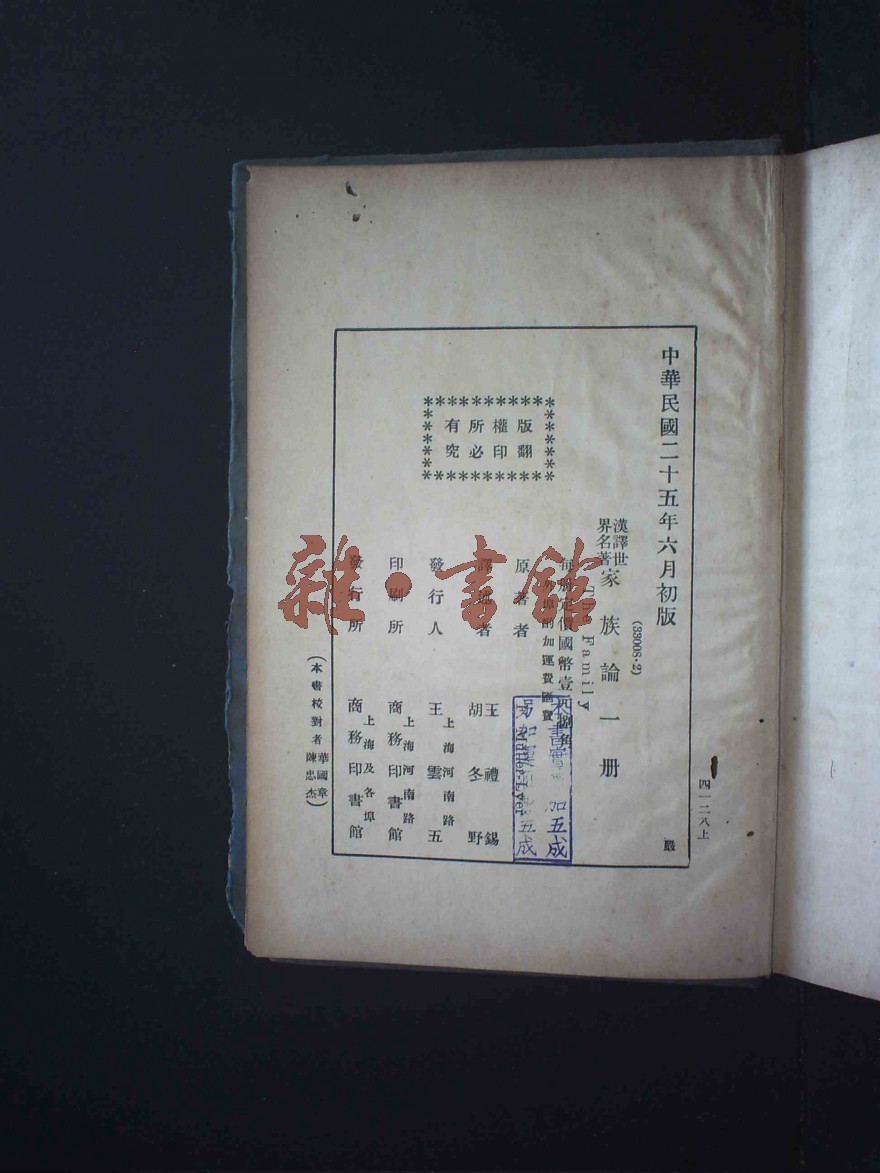 四一二八上
中華民國二十五年六月初版
(33008·2)
漢譯世界名著 家族論一册
The Family
每册定價國幣壹元捌角
外埠酌加運費匯費
原著者 Müller-Lyer
譯述者 王禮錫 胡冬野
發行人 王雲五
上海河南路
印刷所 商務印書館
上海河南路
發行所 商務印書館
上海及各埠
版權所有
翻印必究
(本書校對者 華國章 陳忠杰)
嚴
本書實 加五成
另加運 五成
雜·書館